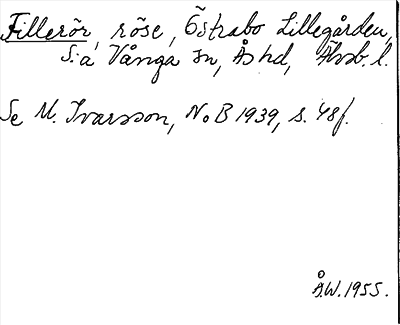 Fillerör, röse, Östrabo Lillegården,
S:a Vånga sn, Ås hd, Älvsb. l.
Se M. Ivarsson, NoB 1939, s. 48f.
Å.W. 1955.